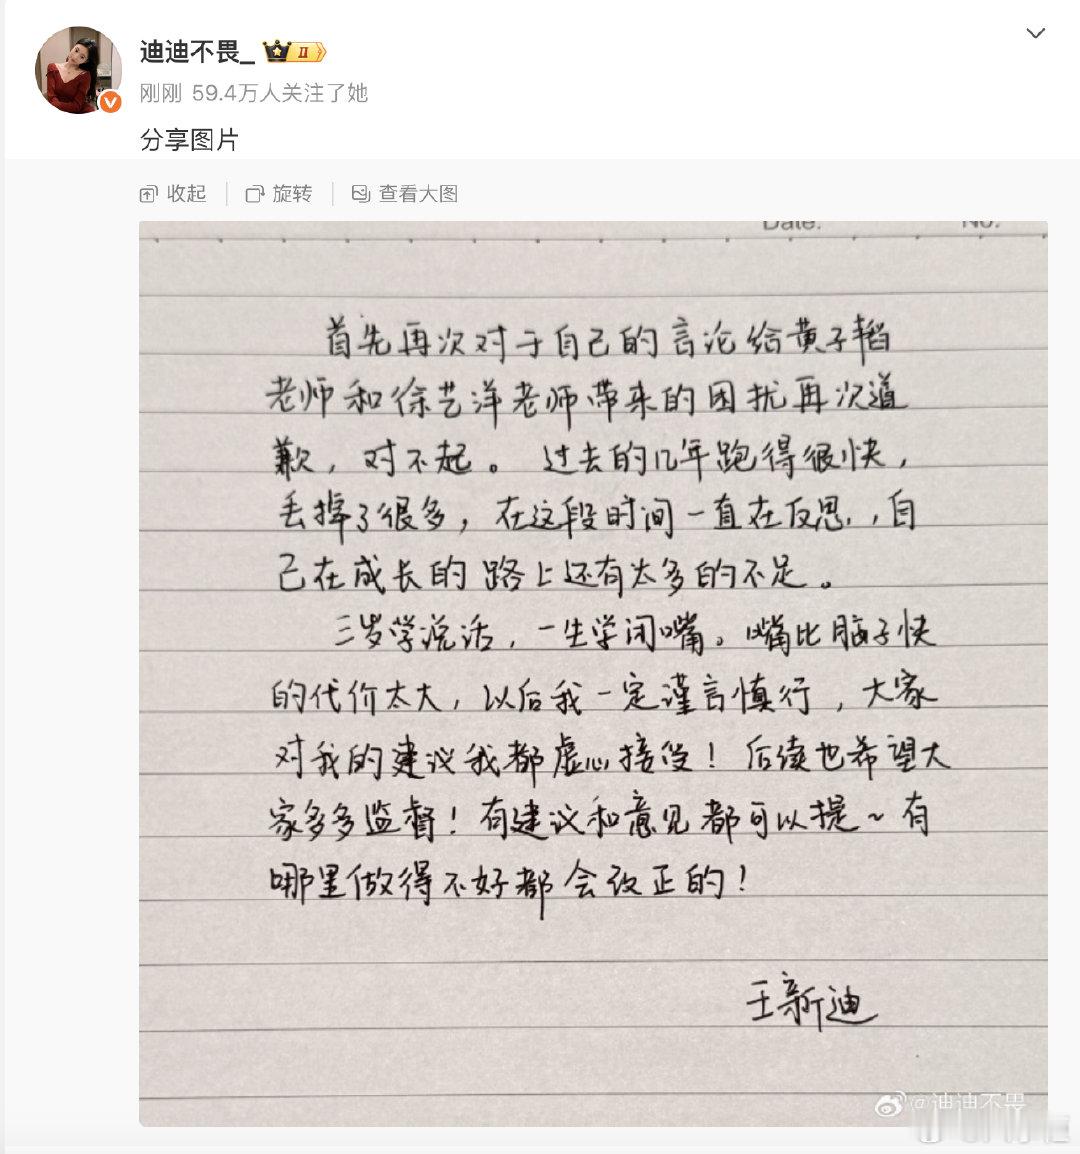 迪迪不畏_ II
刚刚 59.4万人关注了她
分享图片
收起 旋转 查看大图
Date. No.
首先再次对于自己的言论给黄子韬
老师和徐艺洋老师带来的困扰再次道
歉，对不起。过去的几年跑得很快，
丢掉了很多，在这段时间一直在反思，自
己在成长的路上还有太多的不足。
三岁学说话，一生学闭嘴。嘴比脑子快
的代价太大，以后我一定谨言慎行，大家
对我的建议我都虚心接受！后续也希望大
家多多监督！有建议和意见都可以提~有
哪里做得不好都会改正的！
王新迪
@迪迪不畏